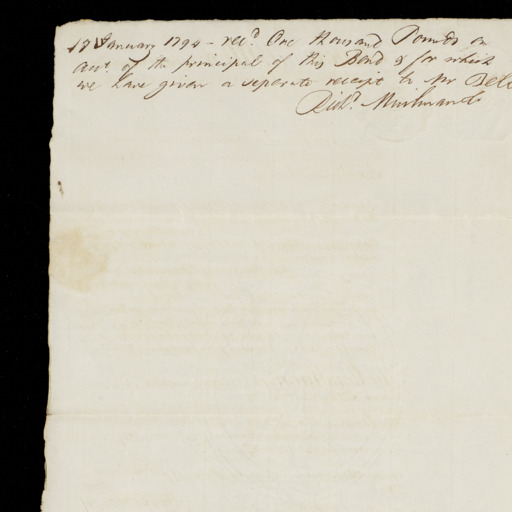 17 January 1794 - rec.d One thousand Pounds on
acct. of the principal of this Bond & for which
we have given a seperate receipt to Mr Bell
Rich.d